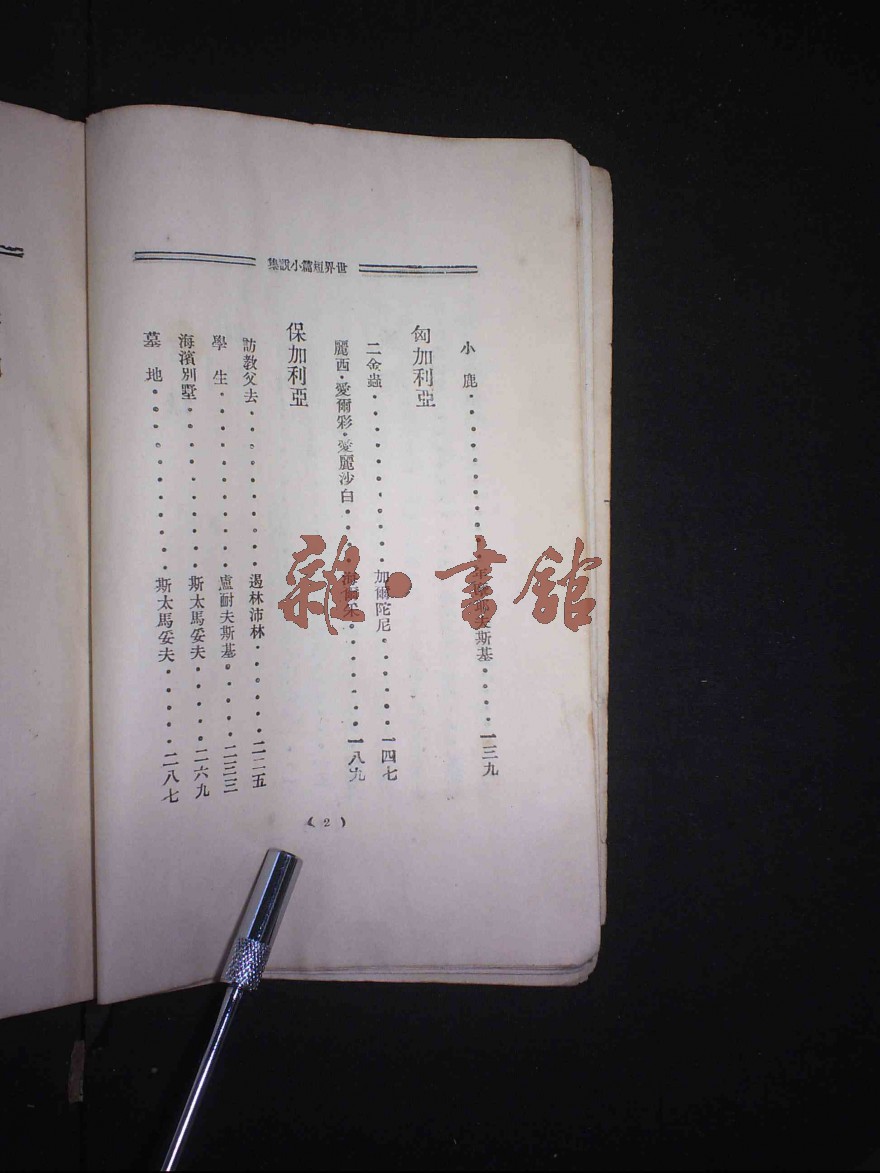 世界短篇小說集
小鹿・・・・・・・・・・・夫斯基・・・・一三九
匈加利亞
二金蟲・・・・・・・・・・・加爾陀尼・・・・・・一四七
麗西・愛爾彩・愛麗沙白・・・・海爾采・・・・・・一八九
保加利亞
訪教父去・・・・・・・・・・遏林沛林・・・・・・二二五
學生・・・・・・・・・・・・盧耐夫斯基・・・・・二三三
海濱別墅・・・・・・・・・・・斯太馬妥夫・・・・・二六九
墓地・・・・・・・・・・・斯太馬妥夫・・・・・二八七
(2)
雜・書館